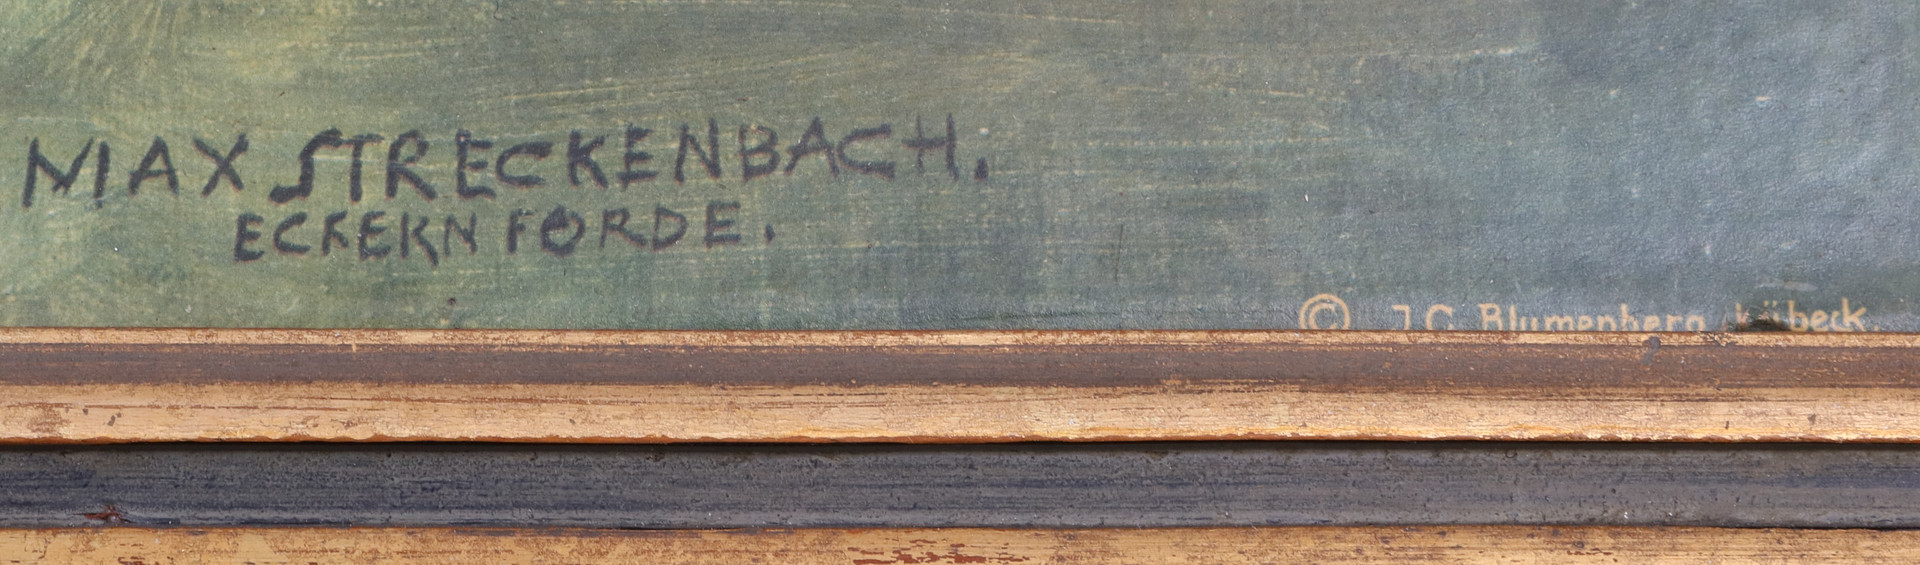 MAX STRECKENBACH.
ECKERNFÖRDE.
© J.C. Blumenberg Lübeck.